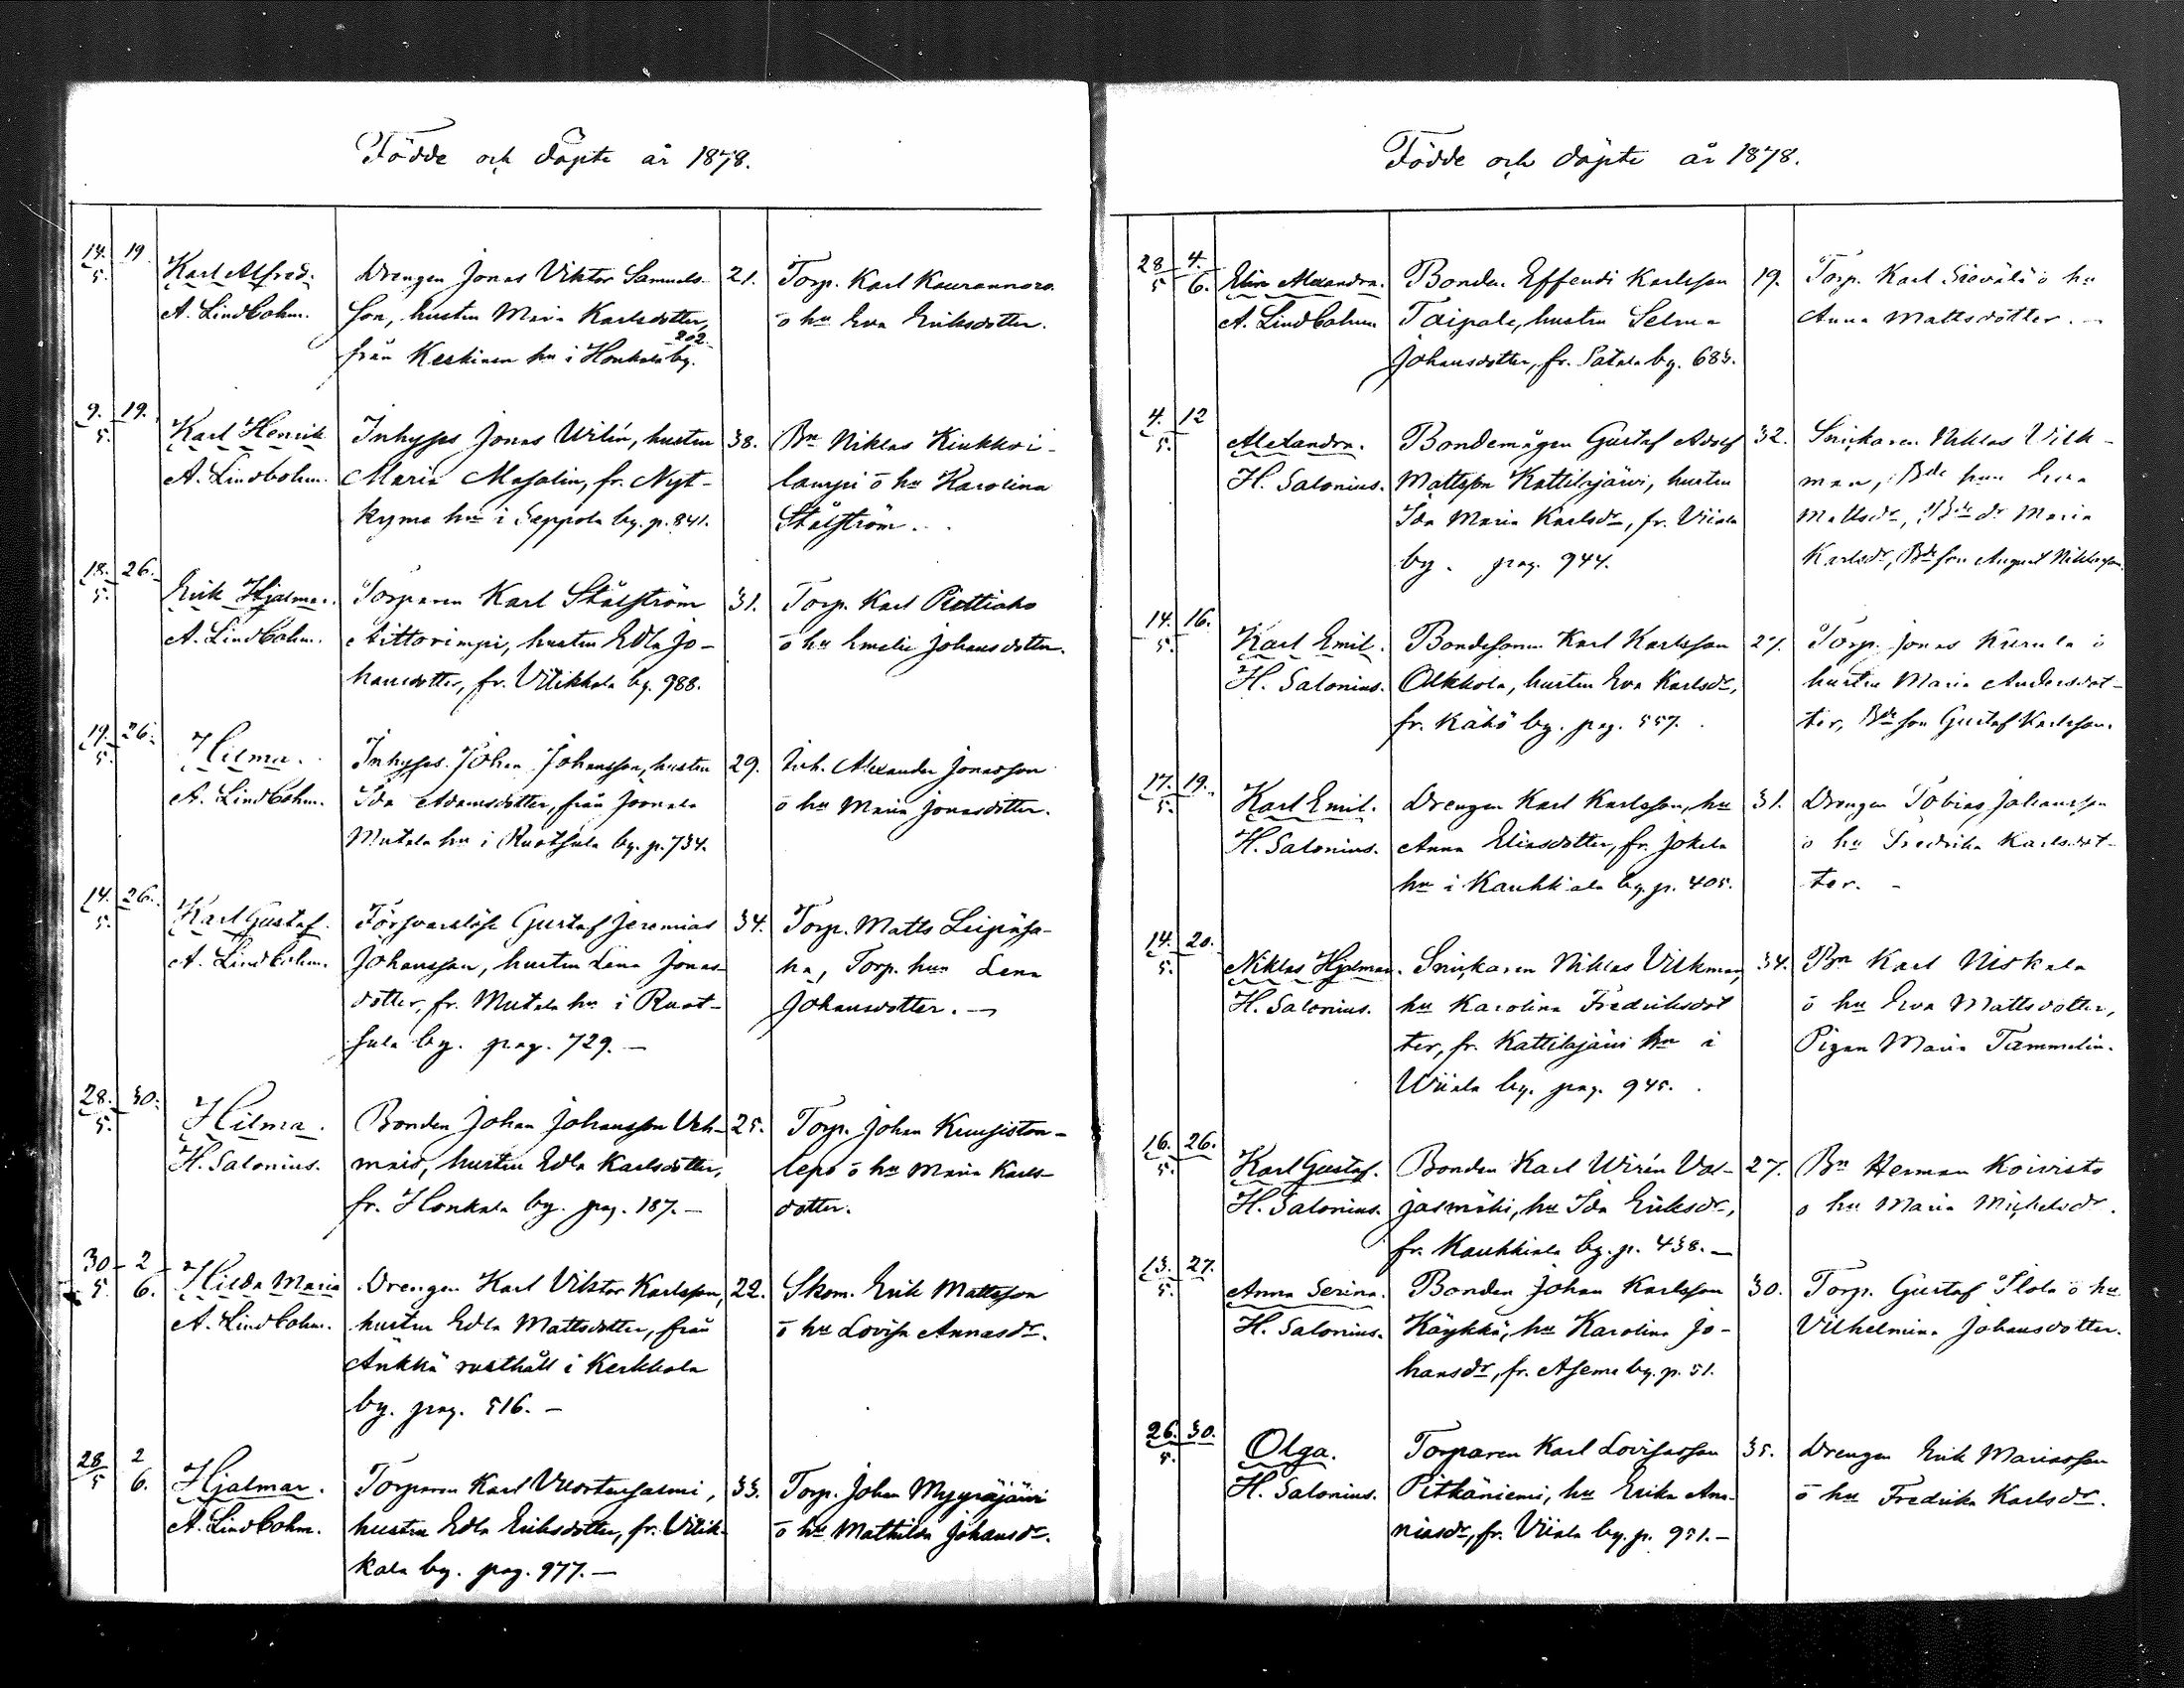 Födde och döpte år 1878.
14. 19
5.
Karl Alfred.
A. Lindbohm.
Drengen Jonas Viktor Samuels-
son, hustru Maria Karlsdotter,
202.
från Keskinen hn i Honkola by.
21.
Torp. Karl Kaurannoro
o hu Eva Eriksdotter.
9. 19.
5.
Karl Henrik
A. Lindbohm.
Inhyses Jonas Wilén, hustru
Maria Masalin, fr. Nyt-
kyme hn i Seppola by. p. 841.
38.
Bn Niklas Kiukkoi-
lampi o hu Karolina
Stålström.
18. 26.
5.
Erik Hjalmar.
A. Lindbohm.
Torparen Karl Stålström
Aittorimpi, hustru Edla Jo-
hansdotter, fr. Vitikkala by. 988.
31.
Torp. Karl
o hu Emelie Johansdotter.
19. 26.
5.
Hilma.
A. Lindbohm.
Inhyses Johan Johansson, hustru
Ida Adamsdotter, från Joonala
Mutala hn i Ruotsula by. p. 734.
29.
Inh. Alexander Jonasson
o hu Maria Jonasdotter.
14. 26.
5.
Karl Gustaf.
A. Lindbohm.
Försvarslöse Gustaf Jeremias
Johansson, hustru Lena Jonas-
dotter, fr. Mutala hn i Ruot-
sula by. pag. 729. —
34.
Torp. Matts Leipäsa-
ha, Torp. hun Lena
Johansdotter. —
28. 30.
5.
Hilma.
H. Salonius.
Bonden Johan Johansson Veh-
mais, hustru Edla Karlsdotter,
fr. Honkola by. pag. 187. —
25.
Torp. Johan
lepo o hu Maria Karls-
dotter.
30 2
5. 6.
Hilda Maria
A. Lindbohm.
Drengen Karl Viktor Karlsson,
hustru Edla Mattsdotter, från
Änkkä rusthåll i Kerkkola
by. pag. 516. —
22.
Skom. Erik Mattsson
o hu Lovisa Annasdr.
28 2
5 6.
Hjalmar.
A. Lindbohm.
Torparen Karl Vuorensalmi,
hustru Edla Eriksdotter, fr. Vitik-
kala by. pag. 977. —
33.
Torp. Johan Myyräjärvi
o hu Mathilda Johansdr.
Födde och döpte år 1878.
28 4.
5 6.
Elin Alexandra.
A. Lindbohm
Bonden Effendi Karlsson
Taipale, hustru Selma
Johansdotter, fr. Satala by. 683.
19.
Torp. Karl Sievälä o hu
Anna Mattsdotter. —
4. 12
5.
Alexandra.
H. Salonius.
Bondemågen Gustaf Adolf
Mattsson Kattilajärvi, hustru
Ida Maria Karlsdr, fr. Viiala
by. pag. 944.
32.
Snickaren Niklas Vilk-
man, Bde hun Lena
Mattsdr, Bde dr Maria
Karlsdr, Bde son August Niklasson.
14. 16.
5.
Karl Emil.
H. Salonius.
Bondesonen Karl Karlsson
Olkkola, hustru Eva Karlsdr,
fr. Kähö by. pag. 557.
27.
Torp. Jonas Kierula o
hustru Maria Andersdot-
ter, Bde son Gustaf Karlsson.
17. 19.
5.
Karl Emil.
H. Salonius.
Drengen Karl Karlsson, hu
Anna Eliasdotter, fr. Jokela
hn i Kaukkiala by. p. 405.
31.
Drengen Tobias Johansson
o hu Fredrika Karlsdot-
ter. —
14. 20.
5.
Niklas Hjalmar.
H. Salonius.
Snickaren Niklas Vilkman,
hu Karolina Fredriksdot
ter, fr. Kattilajärvi hn i
Wiiala by. pag. 945.
34.
Bn Karl Niskala
o hu Eva Mattsdotter,
Pigan Maria Tammelin.
16. 26.
5.
Karl Gustaf.
H. Salonius.
Bonden Karl Wirén Val-
jasmäki, hu Ida Eriksdr,
fr. Kaukkiala by. p. 438. —
27.
Bn Herman Koivisto
o hu Maria Michelsdr.
13. 27.
5.
Anna Serina.
H. Salonius.
Bonden Johan Karlsson
Käykkä, hu Karolina Jo-
hansdr, fr. Asema by. p. 51.
30.
Torp. Gustaf Ilola o hu
Vilhelmina Johansdotter.
26. 30.
5.
Olga.
H. Salonius.
Torparen Karl Lovisasson
Pitkäniemi, hu Erika An-
niasdr, fr. Viiala by. p. 951. —
35.
Drengen Erik Mariasson
o hu Fredrika Karlsdr.